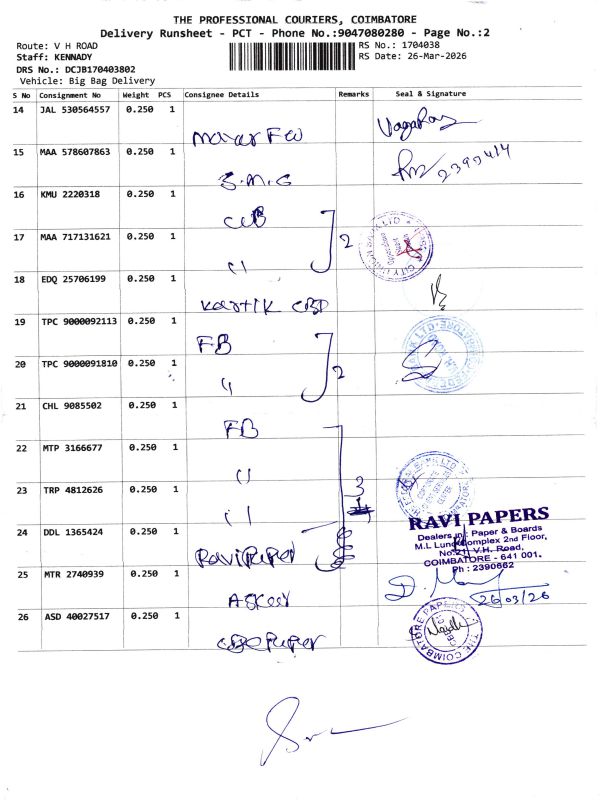 THE PROFESSIONAL COURIERS, COIMBATORE
Delivery Runsheet - PCT - Phone No.:9047080280 - Page No.:2
Route: V H ROAD
Staff: KENNADY
DRS No.: DCJB170403802
Vehicle: Big Bag Delivery
RS No.: 1704038
RS Date: 26-Mar-2026
S No Consignment No Weight PCS Consignee Details Remarks Seal & Signature
14 JAL 530564557 0.250 1
15 MAA 578607863 0.250 1 S.M.G
16 KMU 2220318 0.250 1 CUB
17 MAA 717131621 0.250 1 〃 2
18 EDQ 25706199 0.250 1
19 TPC 9000092113 0.250 1 FB
20 TPC 9000091810 0.250 1 〃 2
21 CHL 9085502 0.250 1 FB
22 MTP 3166677 0.250 1 〃
23 TRP 4812626 0.250 1 〃 3
24 DDL 1365424 0.250 1 Ravi Paper
25 MTR 2740939 0.250 1
26 ASD 40027517 0.250 1
RAVI PAPERS
Dealers in : Paper & Boards
M.L Complex 2nd Floor,
V.H. Road,
COIMBATORE - 641 001.
Ph : 2390662
26/03/26
THE COIMBATORE PAPERS